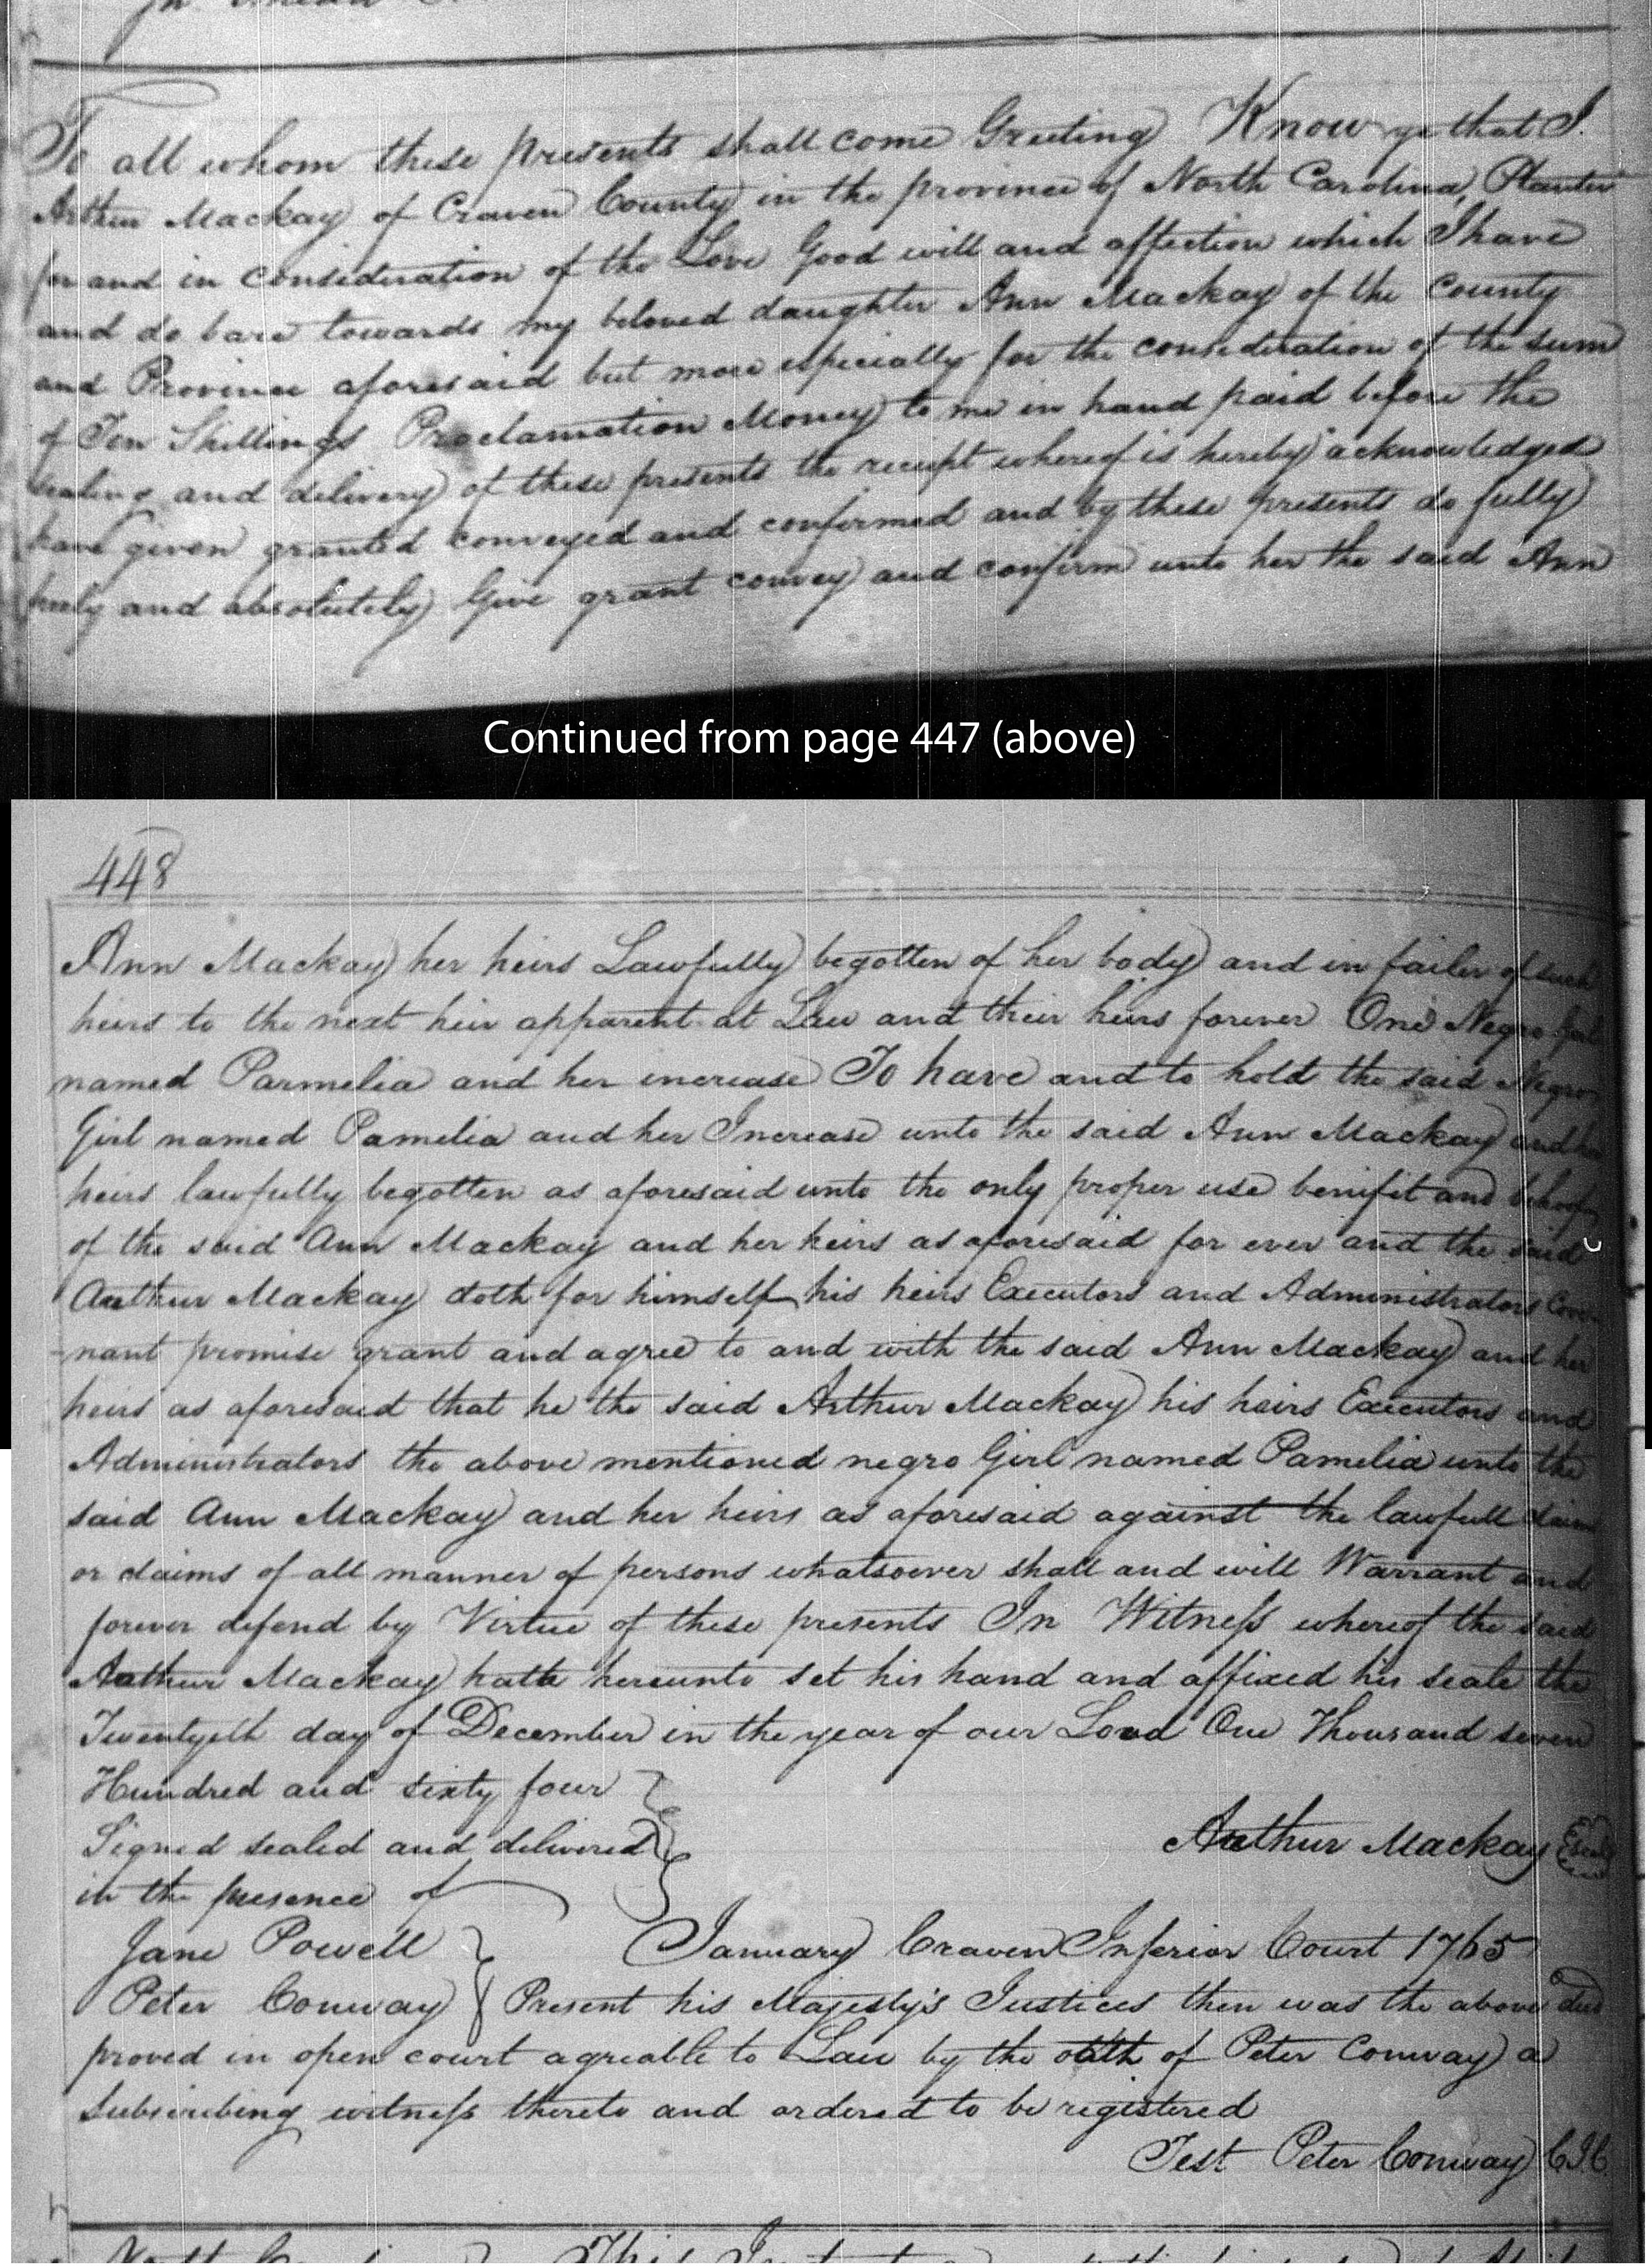 To all whom these presents shall come Greeting Know ye that I
Arthur Mackay of Craven County in the province of North Carolina, Planter
for and in consideration of the Love Good will and affection which I have
and do bare towards my beloved daughter Ann Mackay of the County
and Province aforesaid but more especially for the consideration of the sum
of Ten Shillings Proclamation Money to me in hand paid before the
sealing and delivery of these presents the receipt whereof is hereby acknowledged
have given granted conveyed and confirmed and by these presents do fully
freely and absolutely Give grant convey and confirm unto her the said Ann
Continued from page 447 (above)
448
Ann Mackay her heirs Lawfully begotten of her body and in failer of such
heirs to the next heir apparent at Law and their heirs forever One Negro
named Parmelia and her increase To have and to hold the said Negro
Girl named Pamelia and her Increase unto the said Ann Mackay and her
heirs lawfully begotten as aforesaid unto the only proper use benifit and behoof
of the said Ann Mackay and her heirs as aforesaid for ever and the said
Arthur Mackay doth for himself his heirs Executors and Administrators Cove
-nant promise grant and agree to and with the said Ann Mackay and her
heirs as aforesaid that he the said Arthur Mackay his heirs Executors and
Administrators the above mentioned negro Girl named Pamelia unto the
said Ann Mackay and her heirs as aforesaid against the lawfull claim
or claims of all manner of persons whatsoever shall and will Warrant and
forever defend by Virtue of these presents In Witness whereof the said
Arthur Mackay hath hereunto set his hand and affixed his seale the
Twentyeth day of December in the year of our Lord One Thousand seven
Hundred and sixty four
Signed sealed and delivered
in the presence of
Arthur Mackay (seal)
Jane Powell
Peter Conway
January Craven Inferior Court 1765
Present his Majesty's Justices then was the above deed
proved in open court agreable to Law by the oath of Peter Conway a
Subscribing witness thereto and ordered to be registered
Test Peter Conway C I C